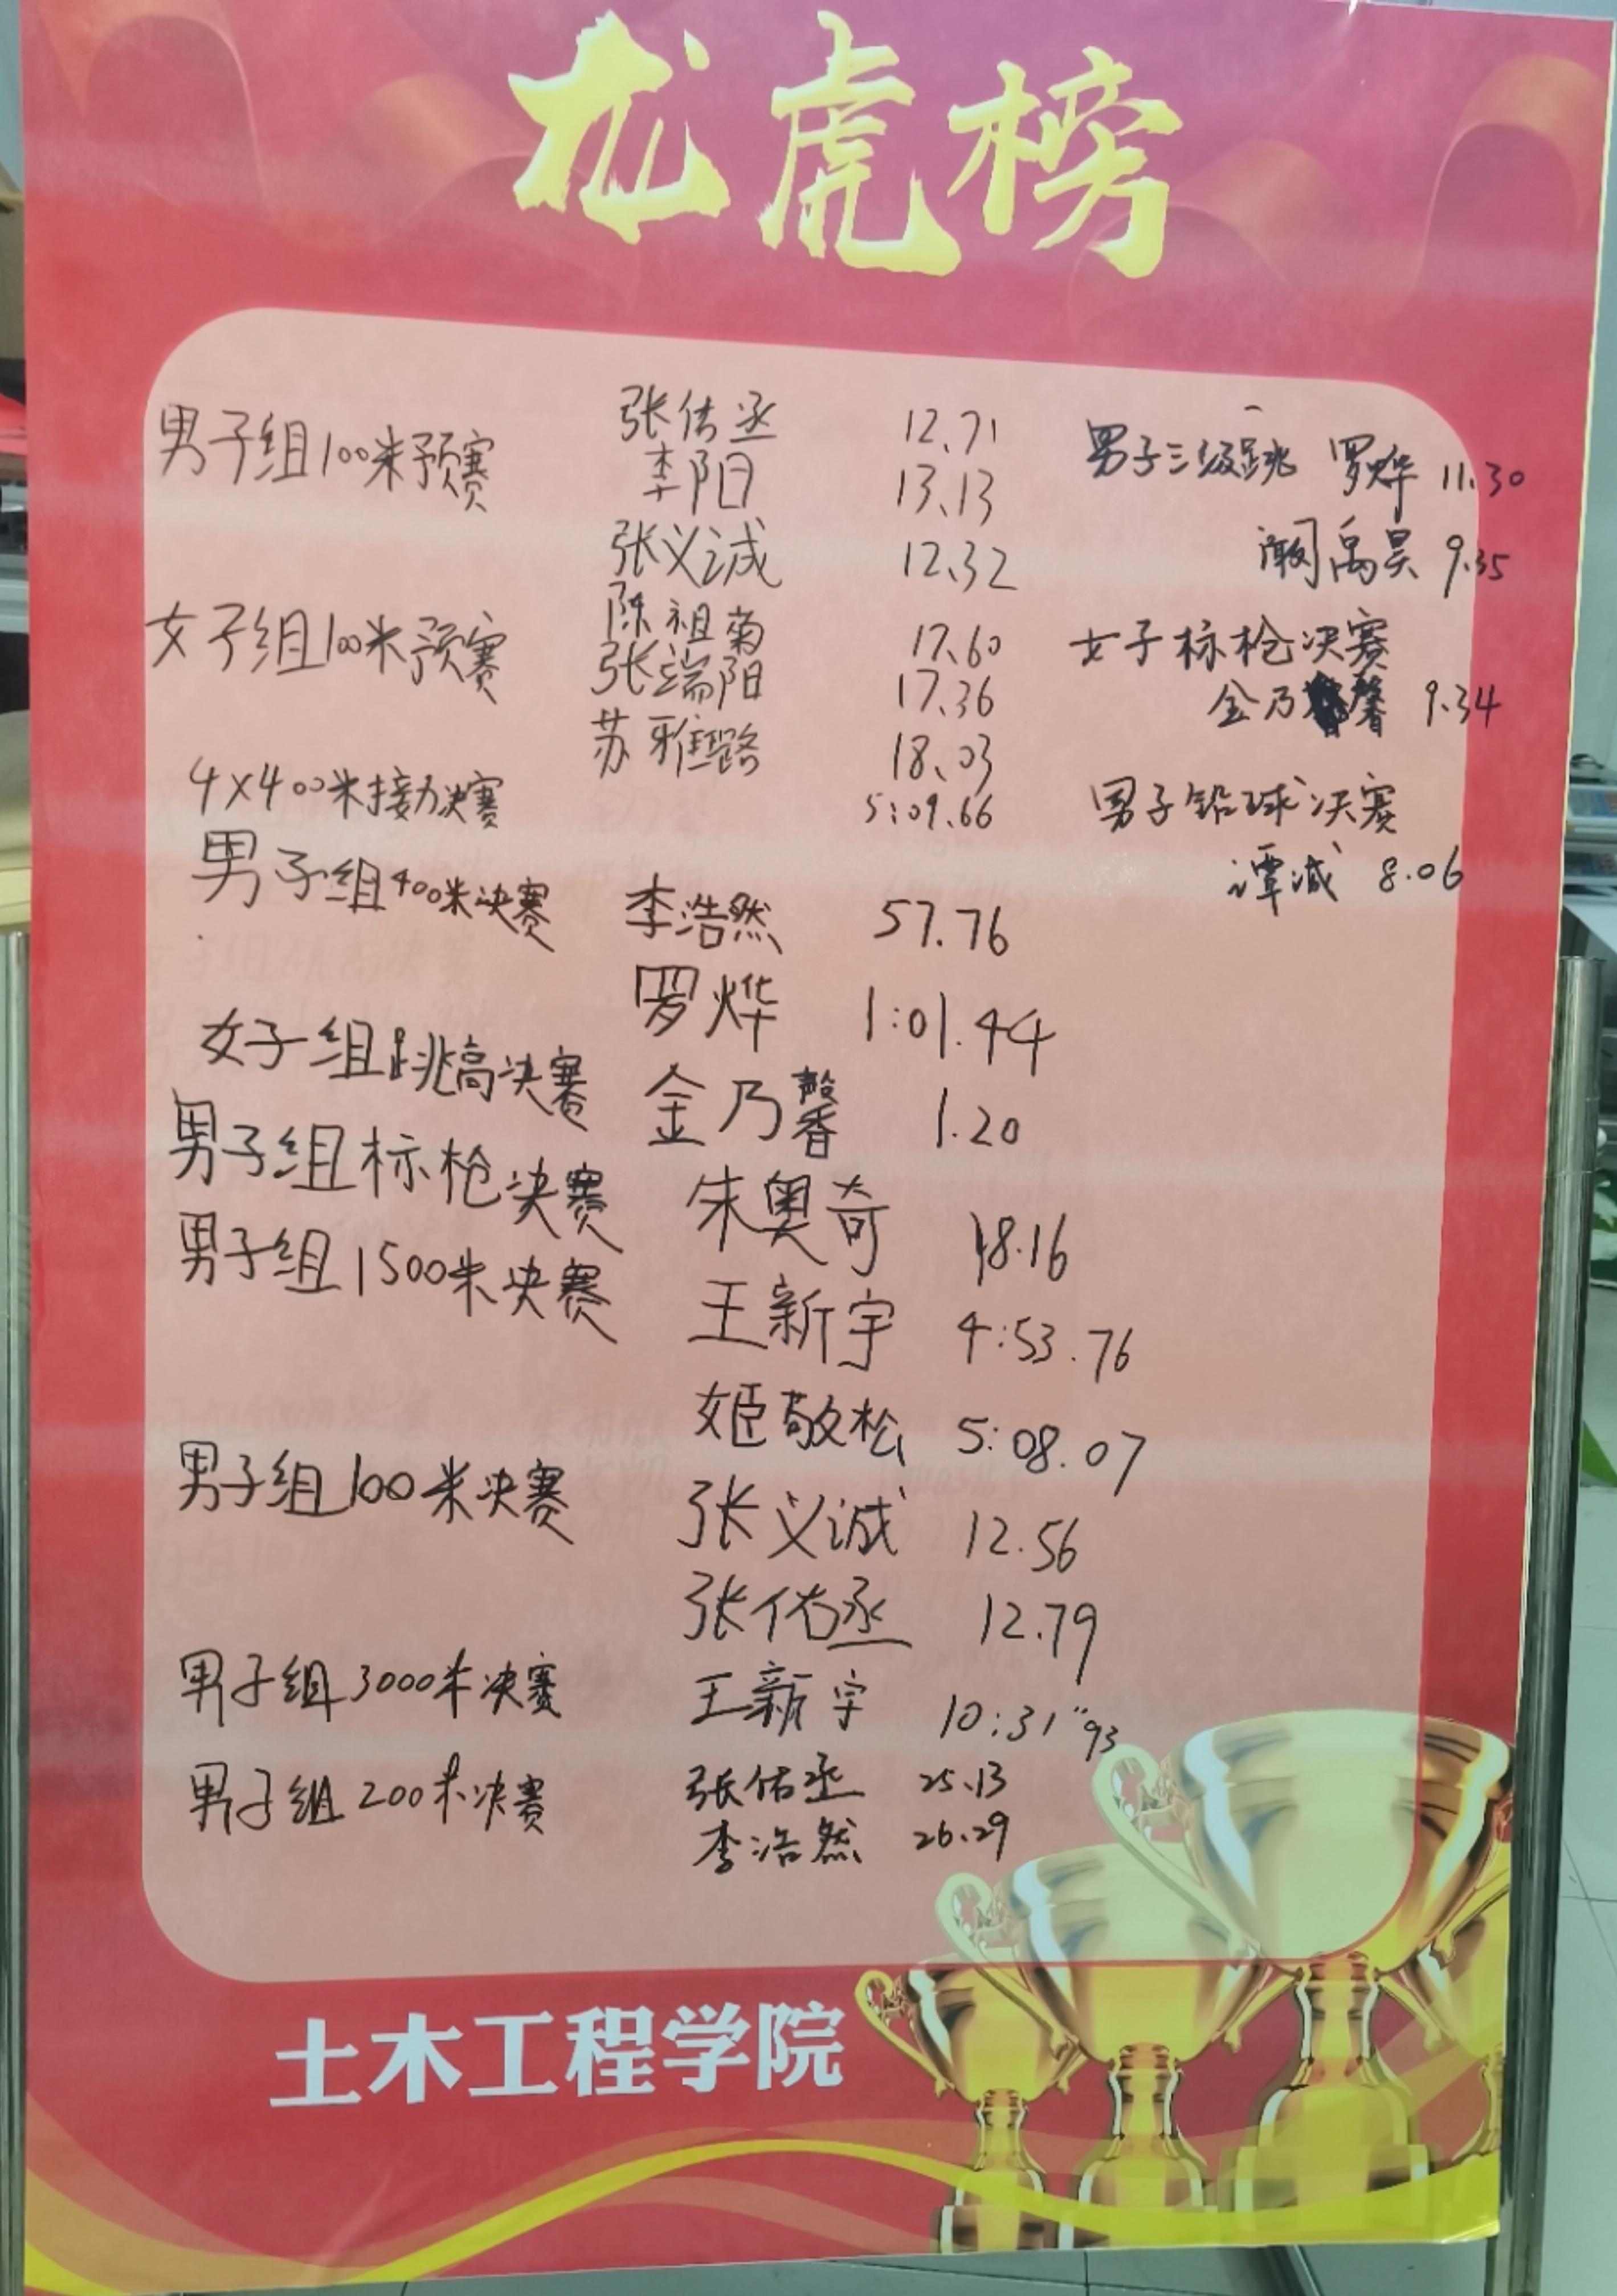 龙虎榜
男子组100米预赛 张佑丞 12.71
李阳 13.13
张义诚 12.32
女子组100米预赛 陈祖菊 17.60
张端阳 17.36
苏雅璐 18.03
4×400米接力决赛 5:09.66
男子组400米决赛 李浩然 57.76
罗烨 1:01.44
女子组跳高决赛 金乃馨 1.20
男子组标枪决赛 朱奥奇 18.16
男子组1500米决赛 王新宇 4:53.76
姬敬松 5:08.07
男子组100米决赛 张义诚 12.56
张佑丞 12.79
男子组3000米决赛 王新宇 10:31"93
男子组200米决赛 张佑丞 25.13
李浩然 26.29
男子三级跳 罗烨 11.30
禹昊 9.35
女子标枪决赛
金乃馨 9.34
男子铅球决赛
谭诚 8.06
土木工程学院